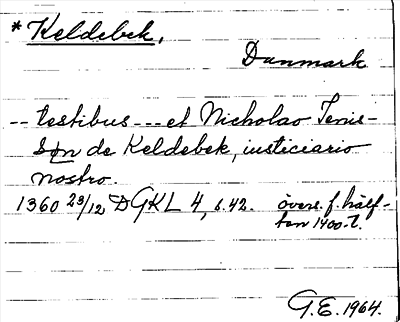 * Keldebek.
Danmark
-- testibus --- et Nicholao Jenis-
søn de Keldebek, iusticiario
nostro.
1360 23/12 DGKL 4, s. 42. övers. f. hälf-
ten 1400-t.
G.E. 1964.